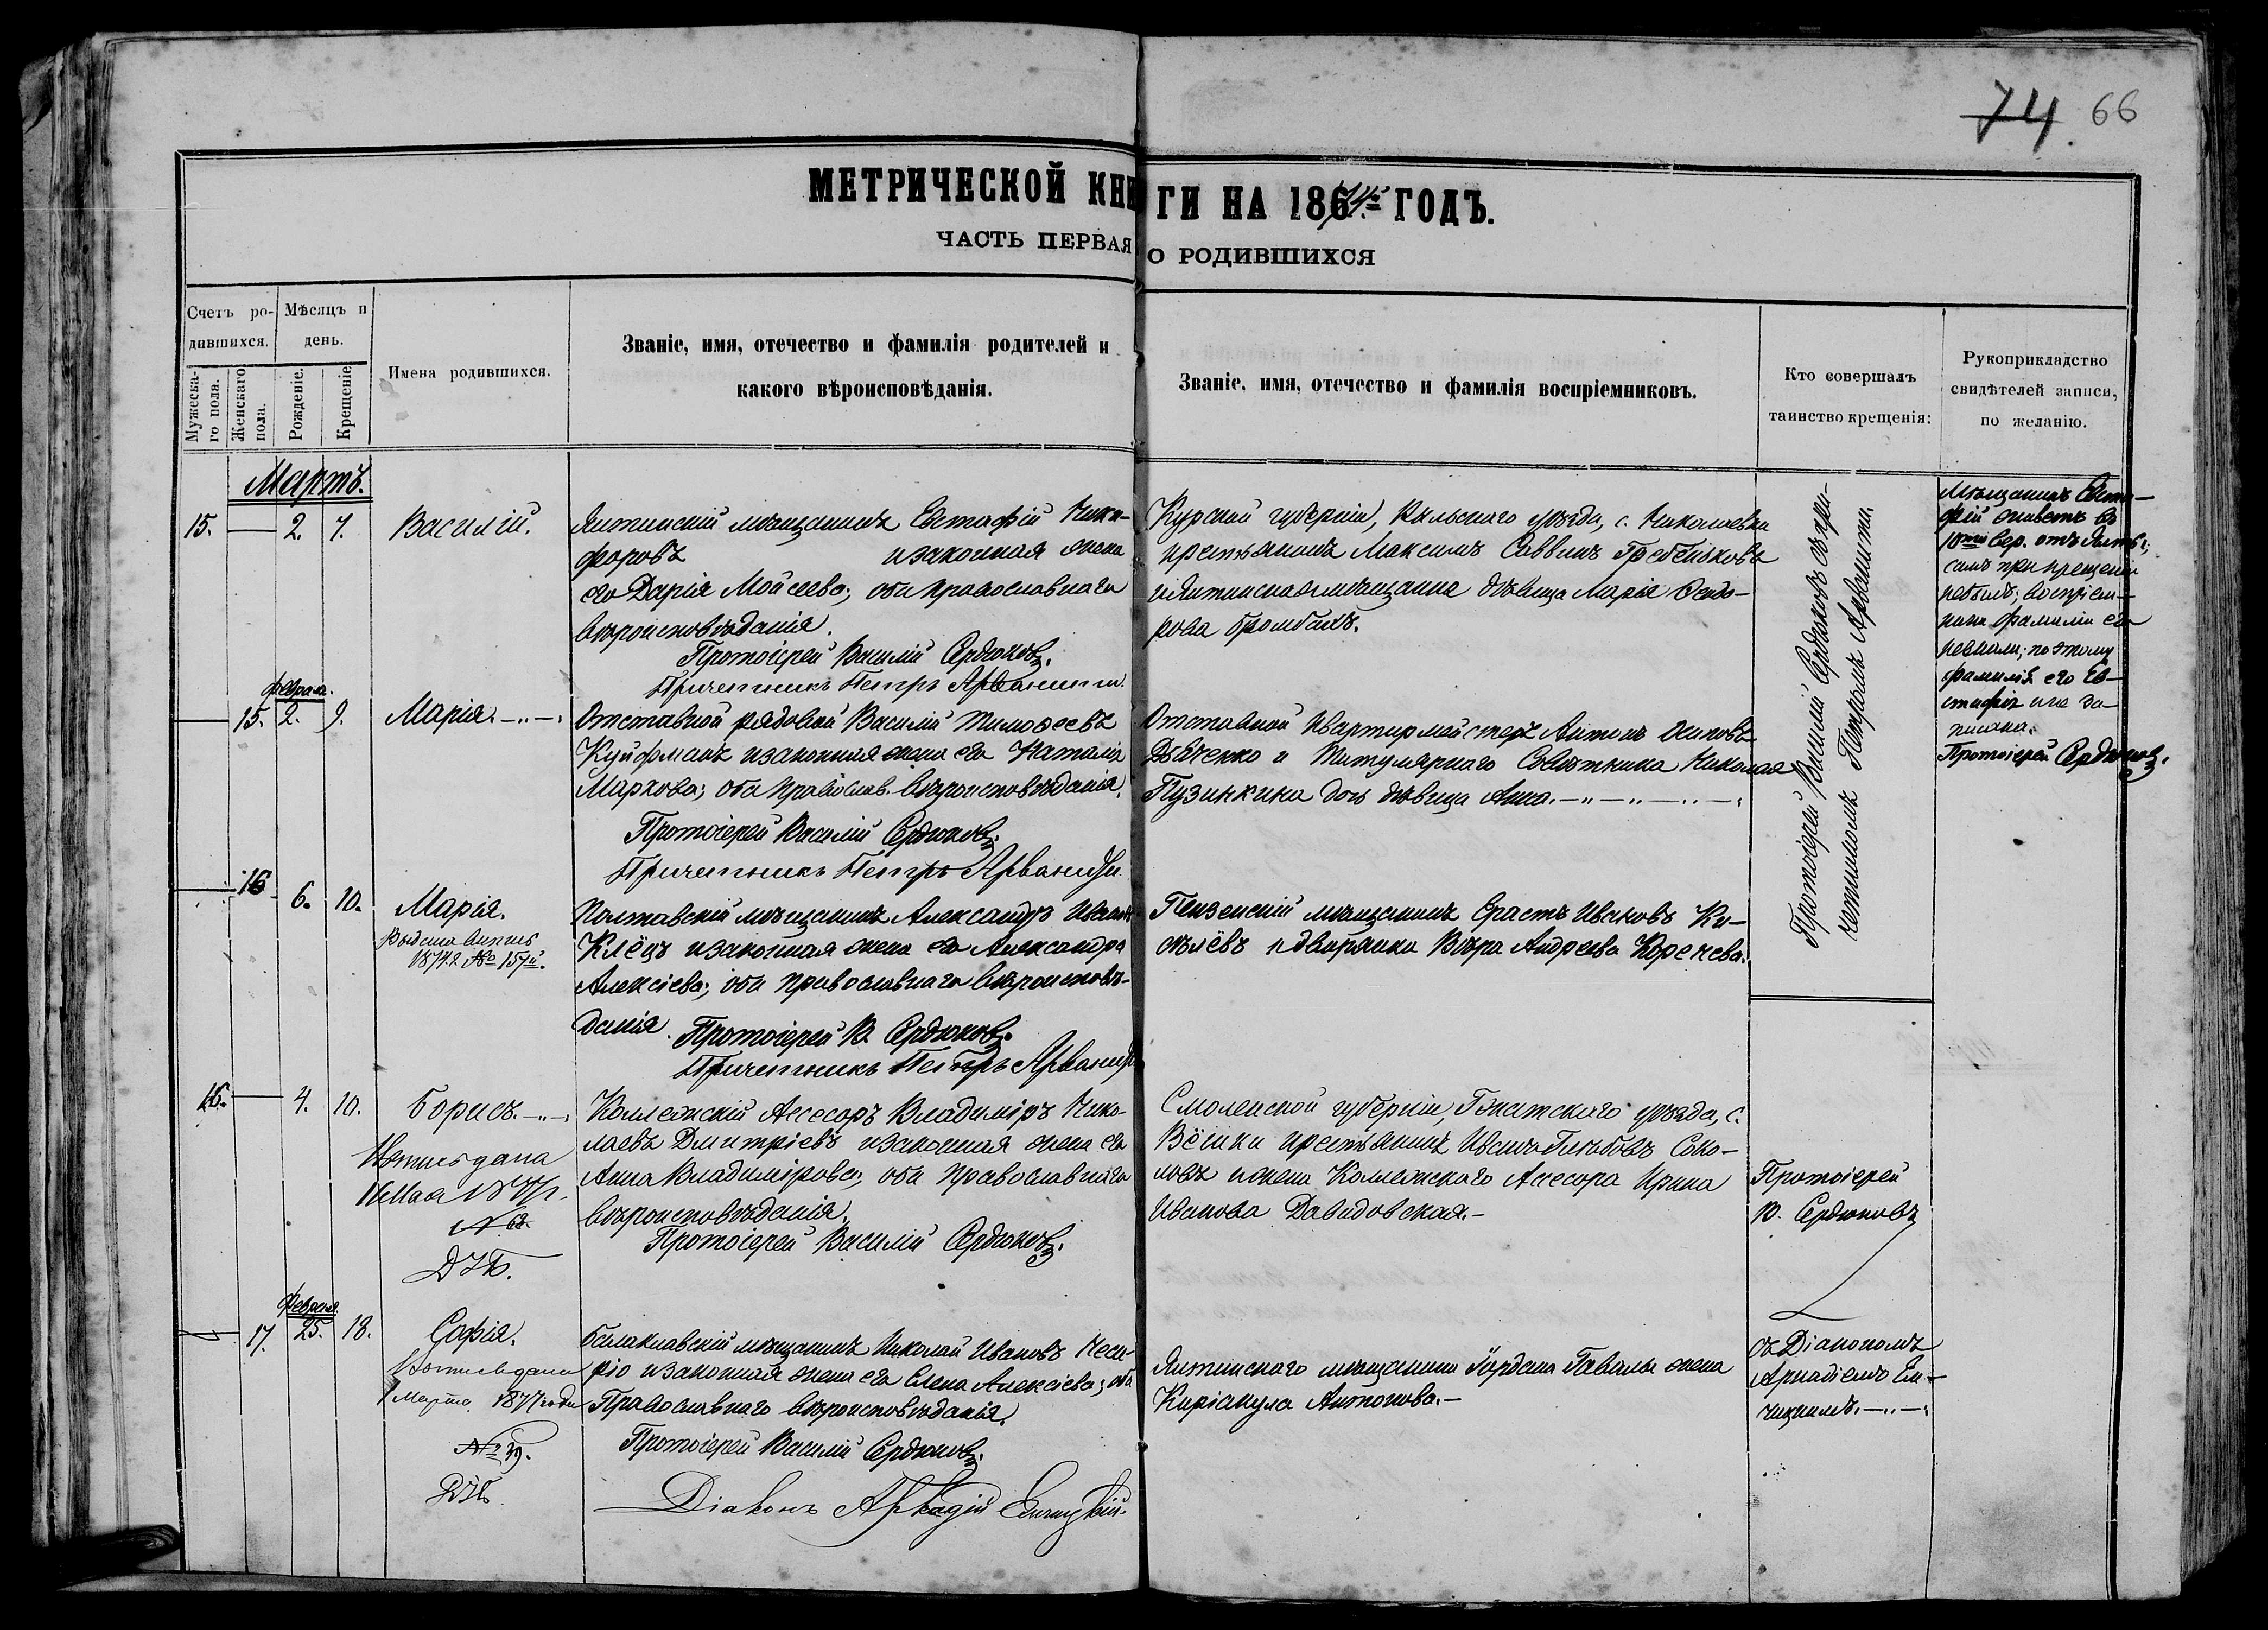 74 66
МЕТРИЧЕСКОЙ КНИГИ НА 1874й ГОДЪ.
ЧАСТЬ ПЕРВАЯ О РОДИВШИХСЯ
Счетъ ро-
дившихся.
Мужеска-
го пола.
Женскаго
пола.
Мѣсяцъ и
день.
Рожденіе.
Крещеніе.
Имена родившихся.
Званіе, имя, отечество и фамилія родителей и
какого вѣроисповѣданія.
Званіе, имя, отечество и фамилія воспріемниковъ.
Кто совершалъ
таинство крещенія:
Рукоприкладство
свидѣтелей записи,
по желанію.
Мартъ.
15. 2. 7. Василій.
Ялтинскій мѣщанинъ Евстафій Ники-
форовъ и законная жена
его Дарія Моѵсеева; оба православнаго
вѣроисповѣданія.
Протоіерей Василій Сердюковъ.
Причетникъ Петръ Арванити.
Курской губерніи, Рыльскаго уѣзда, с. Николаевки
крестьянинъ Максимъ Саввинъ Гребеньковъ
и Ялтинская мѣщанка дѣвица Марія Ѳеодо-
рова
Протоіерей Василій Сердюковъ съ при-
четникомъ Петромъ Арванити.
Мѣщанинъ Евста-
фій живетъ въ
10ти вер. отъ Ялты;
самъ при крещеніи
не былъ; воспріем-
ники фамиліи его
не знали; по этому
фамилія его Ев-
стафія и не за-
писана.
Протоіерей Сердюковъ.
февраля.
15. 2. 9. Марія.
Отставной рядовой Василій Тимоѳеевъ
Куйфманъ и законная жена его Наталія
Маркова; оба православ. вѣроисповѣданія.
Протоіерей Василій Сердюковъ.
Причетникъ Петръ Арванити.
Отставной Квартирмейстеръ Антонъ Осиповъ
Дѣвченко и Титулярнаго Совѣтника Николая
Пузинкина дочь дѣвица Анна.
16 6. 10. Марія.
Выдана выпись
1874 г. № 157й.
Полтавскій мѣщанинъ Александръ Ивановъ
Клёцъ и законная жена его Александра
Алексіева; оба православнаго вѣроисповѣ-
данія.
Протоіерей В. Сердюковъ.
Причетникъ Петръ Арванити
Пензенскій мѣщанинъ Ерастъ Ивановъ Ки-
селёвъ и дворянка Вѣра Андреева Коречева.
16. 4. 10. Борисъ.
Выпись дана
Мая
№ 68
Коллежскій Ассесоръ Владиміръ Нико-
лаевъ Дмитріевъ и законная жена его
Анна Владимірова; оба православнаго
вѣроисповѣданія.
Протоіерей Василій Сердюковъ.
Смоленской губерніи, Гжатскаго уѣзда, с.
Вёшки крестьянинъ Иванъ Глѣбовъ Соко-
ловъ и жена Коллежскаго Ассесора Ирина
Иванова Давидовская.
Протоіерей
В. Сердюковъ
Февраля.
17. 25. 18. Софія.
Выпись дана
Марта 1877 года
№ 39.
Балаклавскій мѣщанинъ Николай Ивановъ
и законная жена его Елена Алексіева; оба
Православнаго вѣроисповѣданія.
Протоіерей Василій Сердюковъ.
Діаконъ Аркадій
Ялтинскаго мѣщанина Іордана Гавалы жена
Киріакула Антонова.
съ Діакономъ
Аркадіемъ